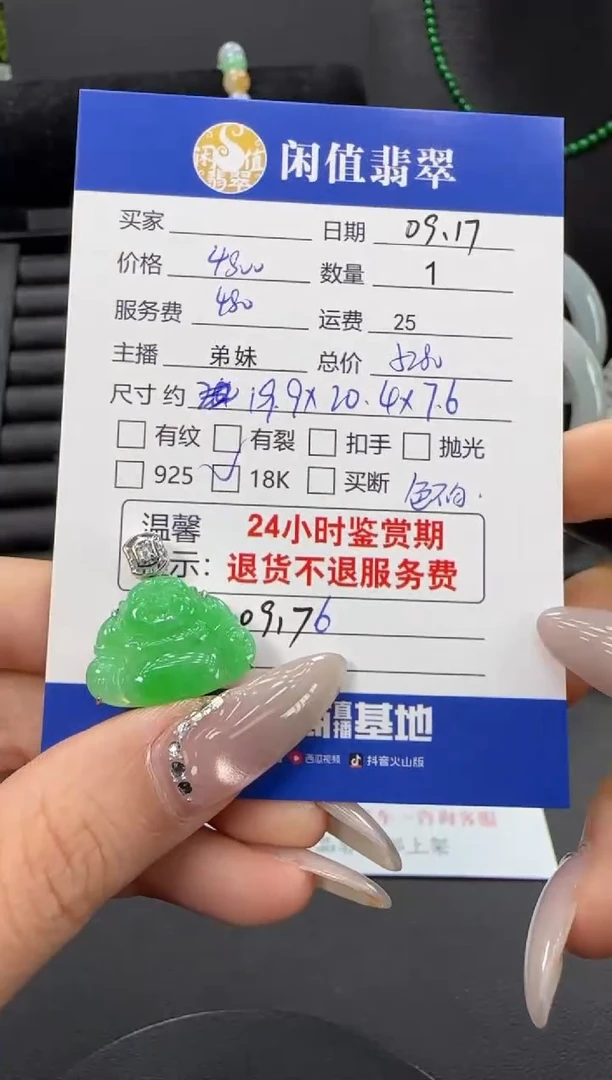 闲值翡翠
闲值翡翠
买家 日期 09.17
价格 4800 数量 1
服务费 480 运费 25
主播 弟妹 总价 5280
尺寸 约 19.9×20.4×7.6
有纹 有裂 扣手 抛光
925 18K 买断
温馨 24小时鉴赏期
示: 退货不退服务费
09,176
直播基地
西瓜视频 抖音火山版